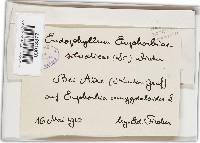 Endophyllum Euphorbiae-
silvaticae (DC.) Winter
Bei Aire
auf Euphorbia amygdaloides L
16 Mai 1912 leg. Ed. Fischer